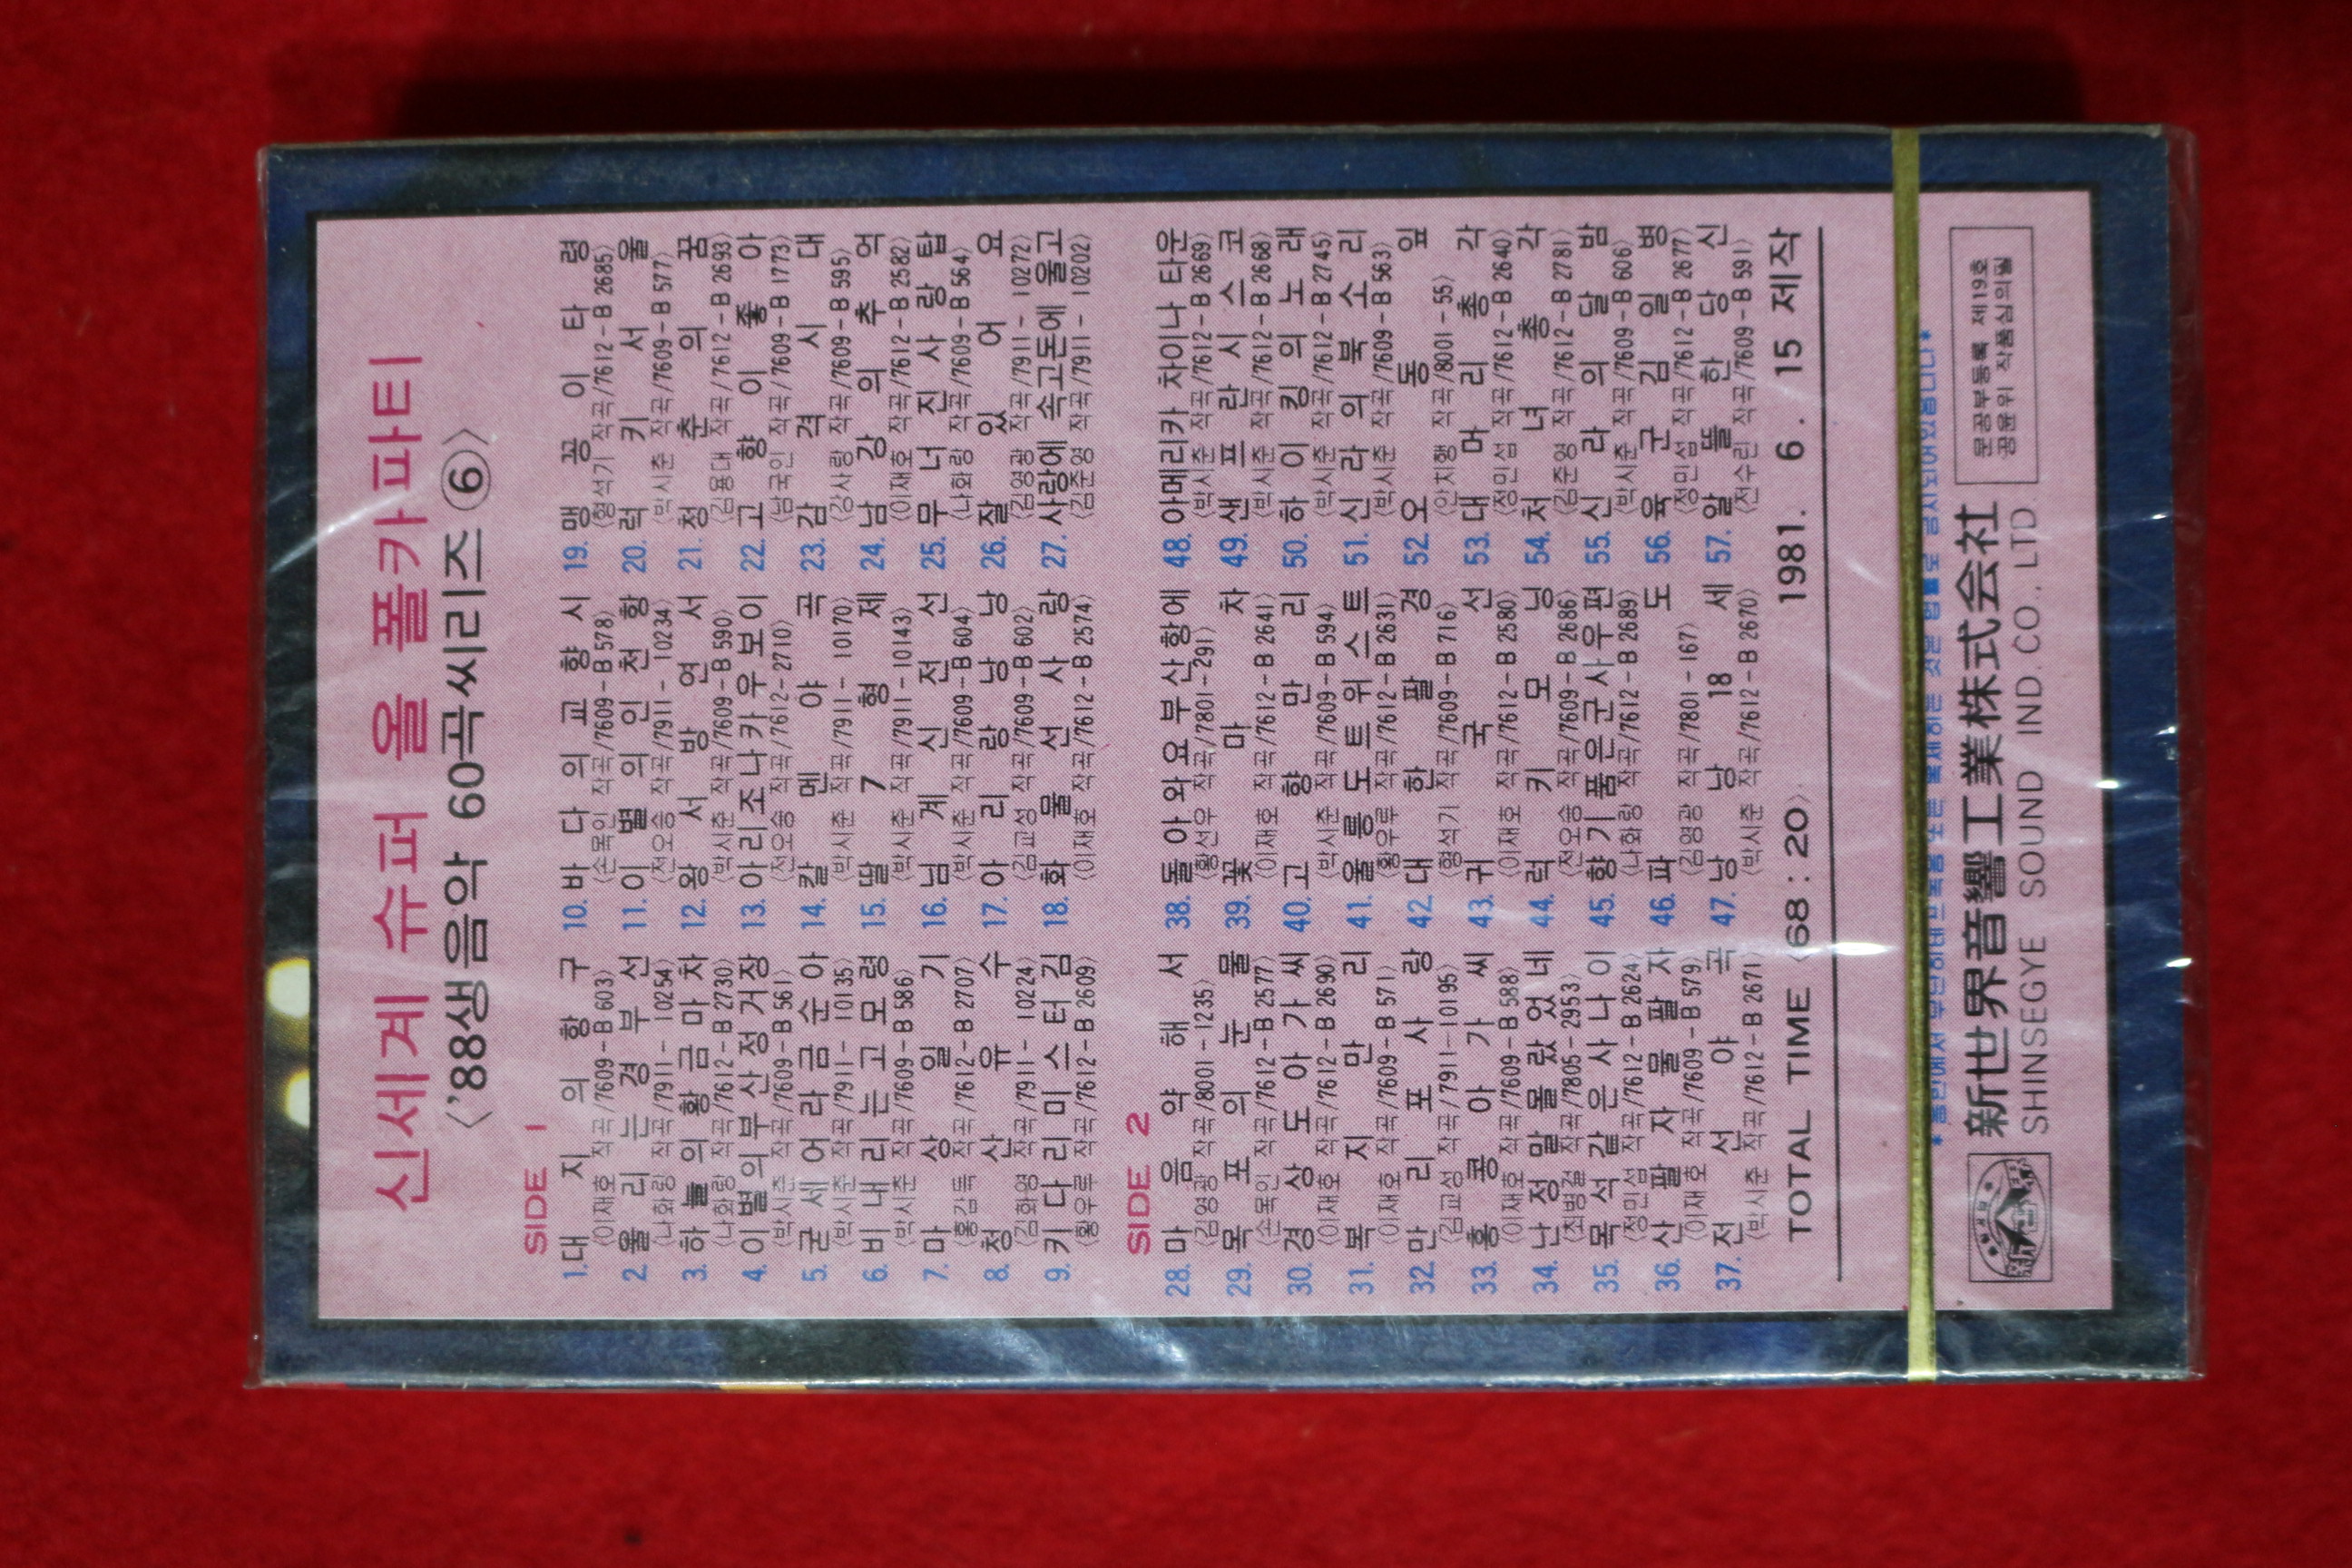 신세계 슈퍼 올 폴카파티
〈'88생음악 60곡씨리즈⑥〉
SIDE 1
1. 대지의항구
〈이재호 작곡/7609-B603〉
2. 울리는경부선
〈나화랑 작곡/7911-10254〉
3. 하늘의황금마차
〈나화랑 작곡/7612-B2730〉
4. 이별의부산정거장
〈박시춘 작곡/7609-B561〉
5. 굳세어라금순아
〈박시춘 작곡/7911-10135〉
6. 비내리는고모령
〈박시춘 작곡/7609-B586〉
7. 마상일기
〈홍갑득 작곡/7612-B2707〉
8. 청산유수
〈김화영 작곡/7911-10224〉
9. 키다리미스터김
〈황우루 작곡/7612-B2609〉
10. 바다의교향시
〈손목인 작곡/7609-B578〉
11. 이별의인천항
〈전오승 작곡/7911-10234〉
12. 왕서방연서
〈박시춘 작곡/7609-B590〉
13. 아리조나카우보이
〈전오승 작곡/7612-2710〉
14. 칼멘야곡
〈박시춘 작곡/7911-10170〉
15. 딸7형제
〈박시춘 작곡/7911-10143〉
16. 님계신전선
〈박시춘 작곡/7609-B604〉
17. 아리랑낭낭
〈김교성 작곡/7609-B602〉
18. 화물선사랑
〈이재호 작곡/7612-B2574〉
19. 맹꽁이타령
〈형석기 작곡/7612-B2685〉
20. 럭키서울
〈박시춘 작곡/7609-B577〉
21. 청춘의꿈
〈김용대 작곡/7612-B2693〉
22. 고향이좋아
〈남국인 작곡/7609-B1773〉
23. 감격시대
〈강사랑 작곡/7609-B595〉
24. 남강의추억
〈이재호 작곡/7612-B2582〉
25. 무너진사랑탑
〈나화랑 작곡/7609-B564〉
26. 잘있어요
〈김영광 작곡/7911-10272〉
27. 사랑에속고돈에울고
〈김준영 작곡/7911-10202〉
SIDE 2
28. 마음약해서
〈김영광 작곡/8001-1235〉
29. 목포의눈물
〈손목인 작곡/7612-B2577〉
30. 경상도아가씨
〈이재호 작곡/7612-B2690〉
31. 복지만리
〈이재호 작곡/7609-B571〉
32. 만리포사랑
〈김교성 작곡/7911-10195〉
33. 홍콩아가씨
〈이재호 작곡/7609-B588〉
34. 난정말몰랐었네
〈최병걸 작곡/7805-2953〉
35. 목석같은사나이
〈정민섭 작곡/7612-B2624〉
36. 산팔자물팔자
〈이재호 작곡/7609-B579〉
37. 전선야곡
〈박시춘 작곡/7612-B2671〉
38. 돌아와요부산항에
〈황선우 작곡/7801-291〉
39. 꽃마차
〈이재호 작곡/7612-B2641〉
40. 고향만리
〈박시춘 작곡/7609-B594〉
41. 울릉도트위스트
〈황우루 작곡/7612-B2631〉
42. 대한팔경
〈형석기 작곡/7609-B716〉
43. 귀국선
〈이재호 작곡/7612-B2580〉
44. 럭키모닝
〈전오승 작곡/7609-B2686〉
45. 향기품은군사우편
〈나화랑 작곡/7612-B2689〉
46. 파도
〈김영광 작곡/7801-167〉
47. 낭낭18세
〈박시춘 작곡/7612-B2670〉
48. 아메리카 차이나 타운
〈박시춘 작곡/7612-B2669〉
49. 샌프란시스코
〈박시춘 작곡/7612-B2668〉
50. 하이킹의노래
〈박시춘 작곡/7612-B2745〉
51. 신라의북소리
〈박시춘 작곡/7609-B563〉
52. 오동잎
〈안치행 작곡/8001-55〉
53. 대머리총각
〈정민섭 작곡/7612-B2640〉
54. 처녀총각
〈김준영 작곡/7612-B2781〉
55. 신라의달밤
〈박시춘 작곡/7609-B606〉
56. 육군김일병
〈정민섭 작곡/7612-B2677〉
57. 알뜰한당신
〈전수린 작곡/7609-B591〉
TOTAL TIME 〈68:20〉 1981. 6. 15 제작
新世界音響工業株式会社
SHINSEGYE SOUND IND. CO., LTD
문공부등록 제19호
공윤위 작품심의필